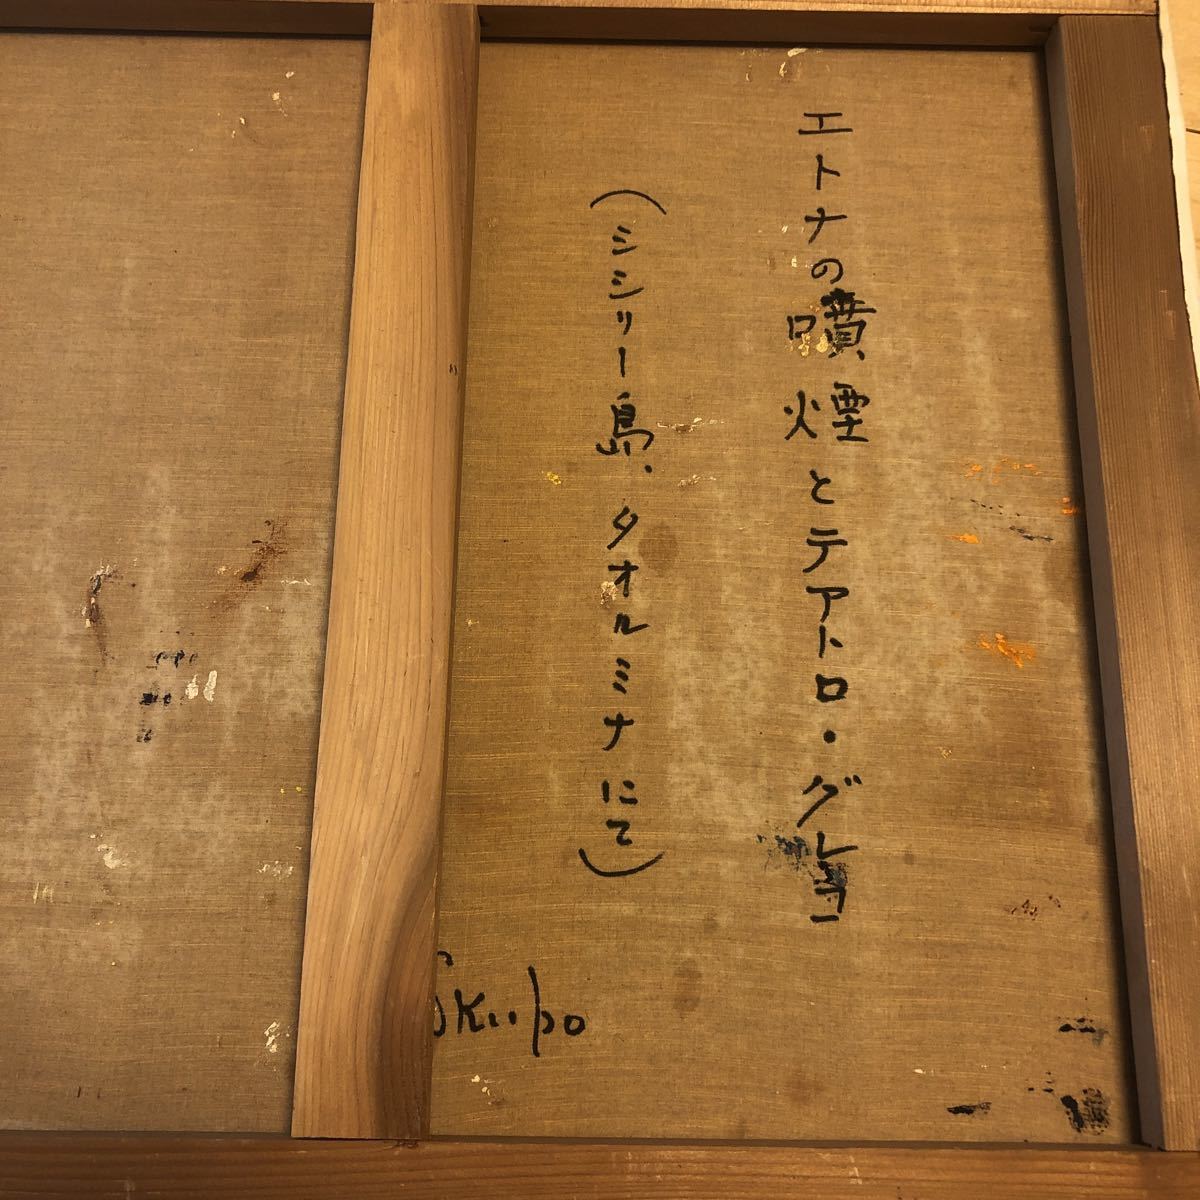 エトナの噴煙とテアトロ・グレコ
(シシリー島、タオルミナにて)